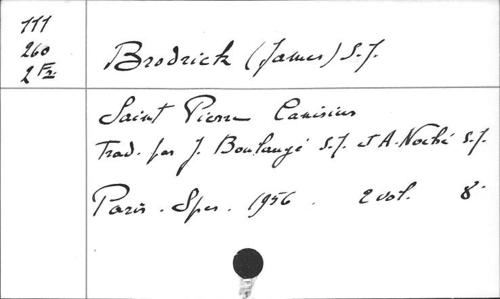 111
260
2 F2.
Brodrick (James) S.J.
Saint Pierre Canisius
Trad. par J. Boulangé S.J. et A. Noché S.J.
Paris. Spes. 1956. 2 vol. 8°